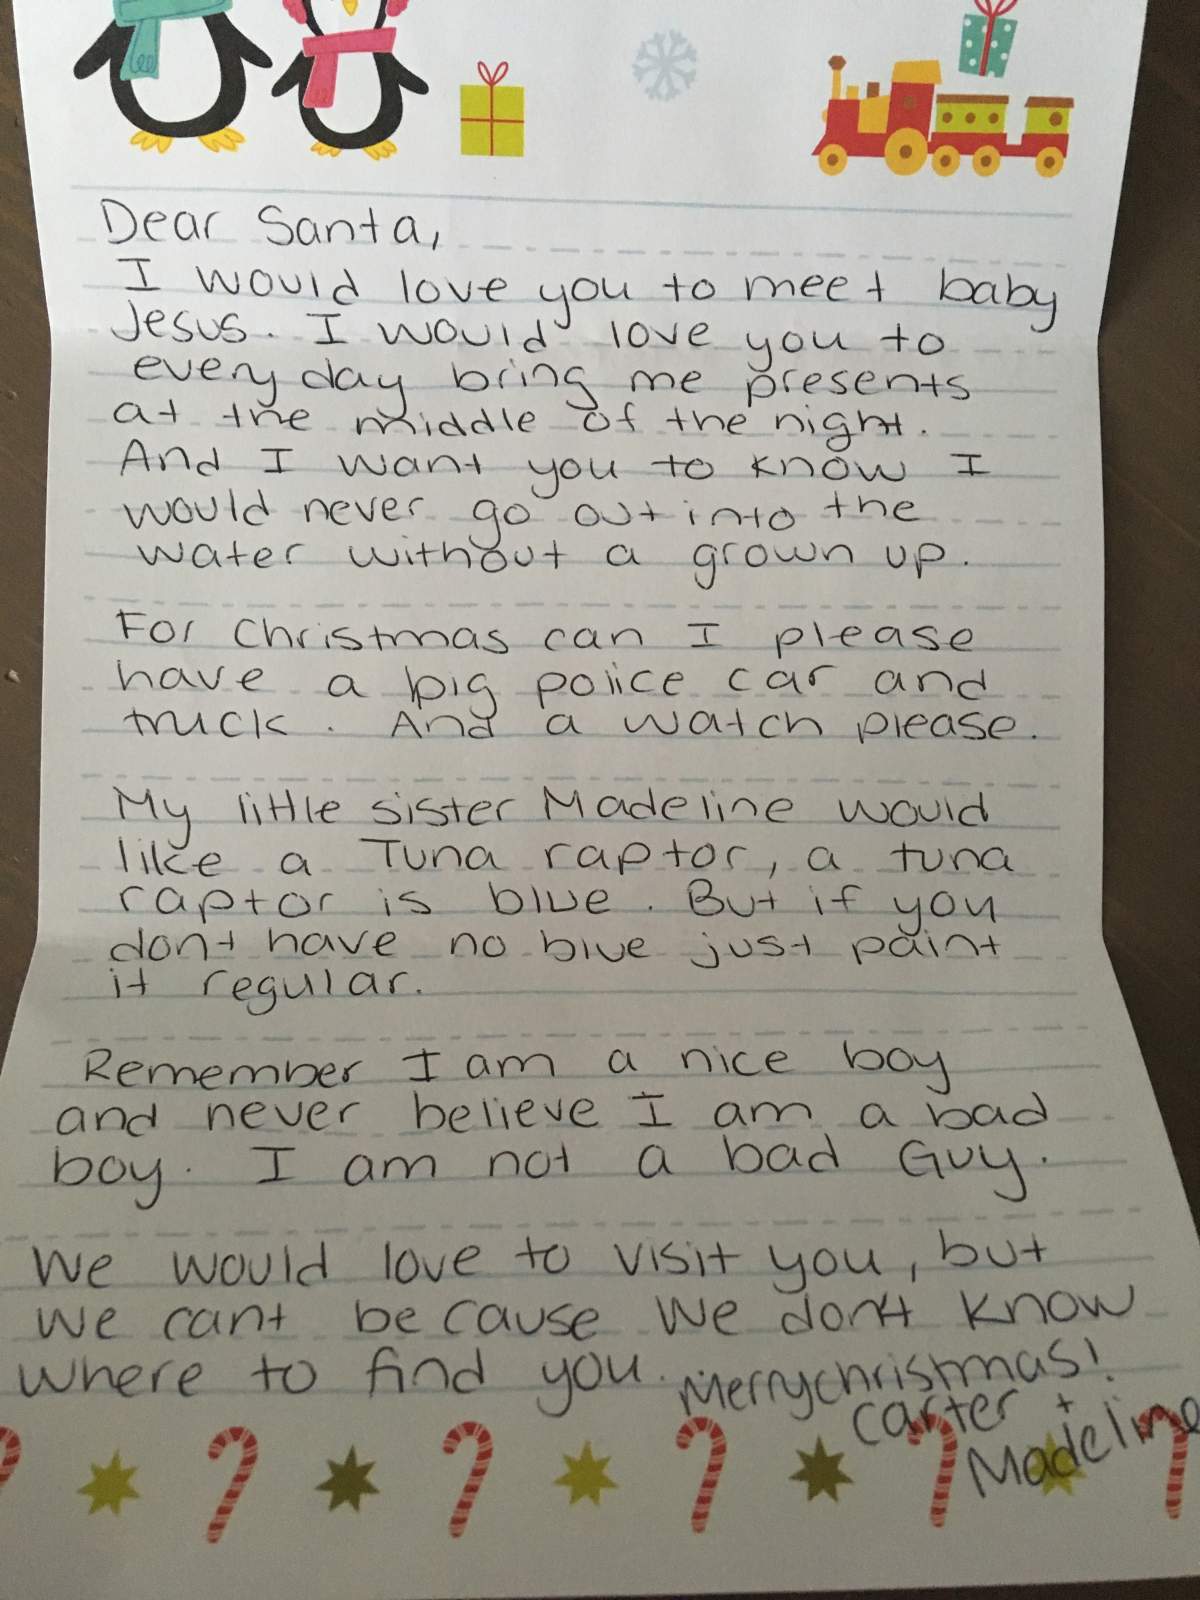 Dear Santa,
I would love you to meet baby
Jesus. I would love you to
every day bring me presents
at the middle of the night.
And I want you to know I
would never go out into the
water without a grown up.
For Christmas can I please
have a big police car and
truck. And a watch please.
My little sister Madeline would
like a Tuna raptor, a tuna
raptor is blue. But if you
dont have no blue just paint
it regular.
Remember I am a nice boy
and never believe I am a bad
boy. I am not a bad Guy.
We would love to visit you, but
we cant because we don't know
where to find you. Merry christmas!
Carter +
Madeline